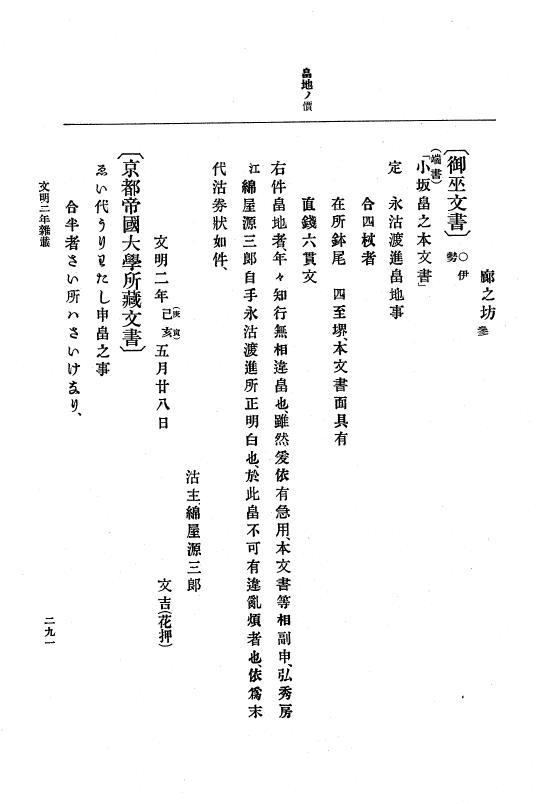 畠地ノ價
廊之坊參
〔御巫文書〕○伊勢
(端書)
「小坂畠之本文書」
定　永沽渡進畠地事
合四杖者
在所鉢尾　四至堺、本文書面具有
直錢六貫文
右件畠地者、年々知行無相違畠也、雖然、爰依有急用、本文書等相副申、弘秀房
江綿屋源三郎自手永沽渡進所正明白也、於此畠不可有違亂煩者也、依爲末
代沽券狀如件、
文明二年己亥(庚寅)五月廿八日　文吉(花押)
沽主、綿屋源三郎
〔京都帝國大學所藏文書〕
ゑい代うりわたし申畠之事
合半者さい所ハさいけなり、
文明二年雜載
二九一